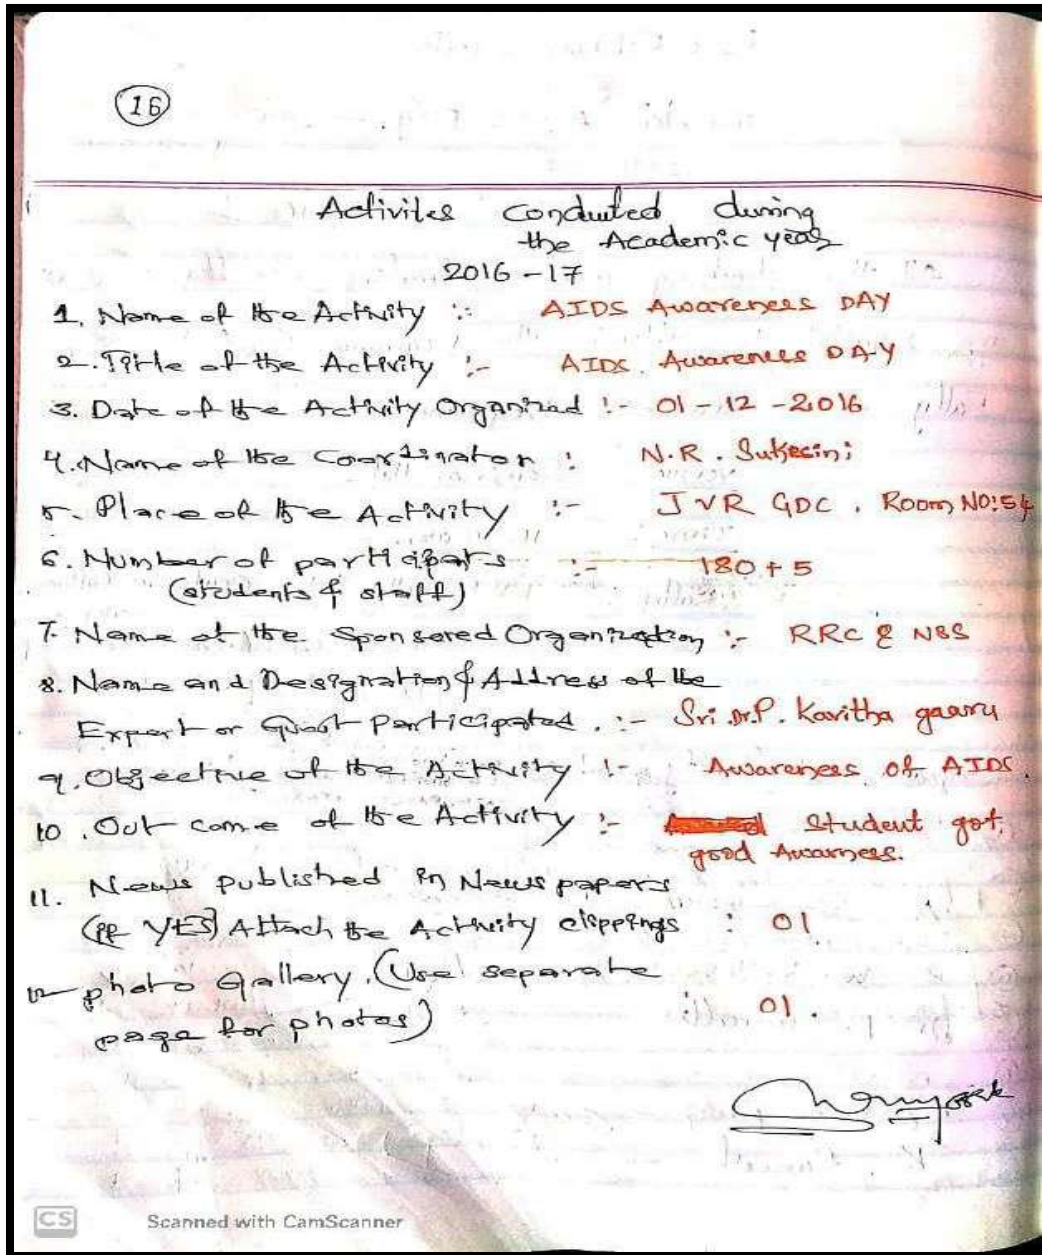 16
Activites conducted during
the Academic year
2016-17
1. Name of the Activity :- AIDS Awareness DAY
2. Title of the Activity :- AIDS Awareness DAY
3. Date of the Activity Organized :- 01-12-2016
4. Name of the Coordinator : N.R. Sukesini
5. Place of the Activity :- JVR GDC, Room No:54
6. Number of participats :- 180 + 5
(students & staff)
7. Name of the Sponsered Organization :- RRC & NSS
8. Name and Designation & Address of the
Expert or Guest Participated. :- Sri Dr.P. Kavitha gaaru
9. Objective of the Activity :- Awareness of AIDS.
10. Out come of the Activity :- Student got
good Awarness.
11. News published in News papers
(If YES) Attach the Activity clippings : 01
12 photo Gallery. (Use separate
page for photos) : 01.
CS Scanned with CamScanner